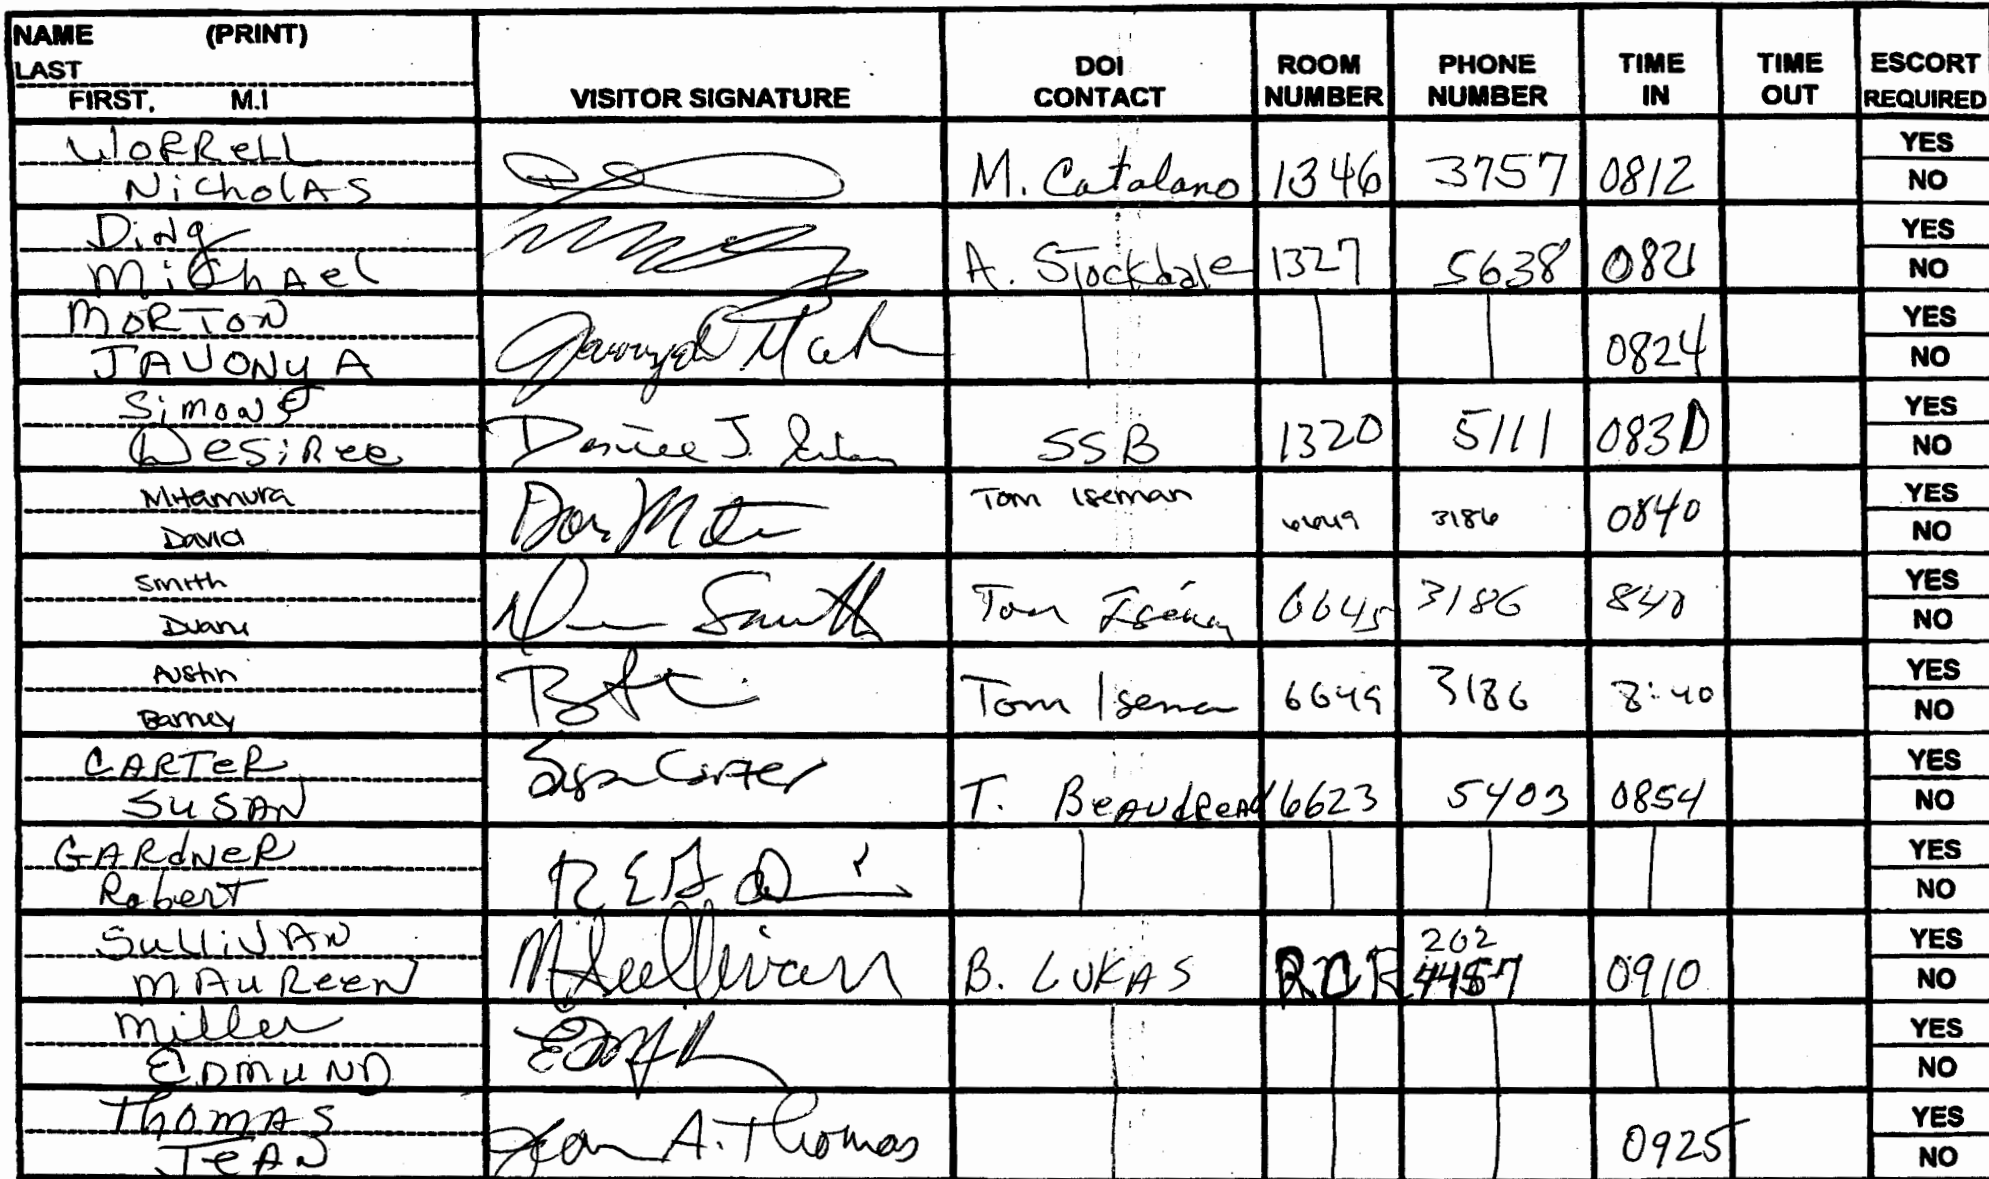 NAME (PRINT)
LAST
FIRST, M.I
VISITOR SIGNATURE
DOI
CONTACT
ROOM
NUMBER
PHONE
NUMBER
TIME
IN
TIME
OUT
ESCORT
REQUIRED
WORRELL
NicholAS
M. Catalano 1346 3757 0812
YES
NO
DiNg
MiChAel
A. Stockdale 1327 5638 0821
YES
NO
MORTON
JAVONY A
0824
YES
NO
SimonE
DesiRee
SSB 1320 5111 0830
YES
NO
Mitamura
David
Tom Iseman 6649 3186 0840
YES
NO
Smith
Duane
Smith
Tom Iseman 6645 3186 840
YES
NO
Austin
Barney
Tom Iseman 6649 3186 8:40
YES
NO
CARTeR
SuSAN
Susan Carter
T. BeAudReAu 6623 5403 0854
YES
NO
GARdNeR
RobeRT
YES
NO
SulliVAN
MAuReeN
MSullivan
B. LUKAS 202 0910
YES
NO
Miller
EDMuND
YES
NO
ThomAS
JeAN
Jean A. Thomas
0925
YES
NO